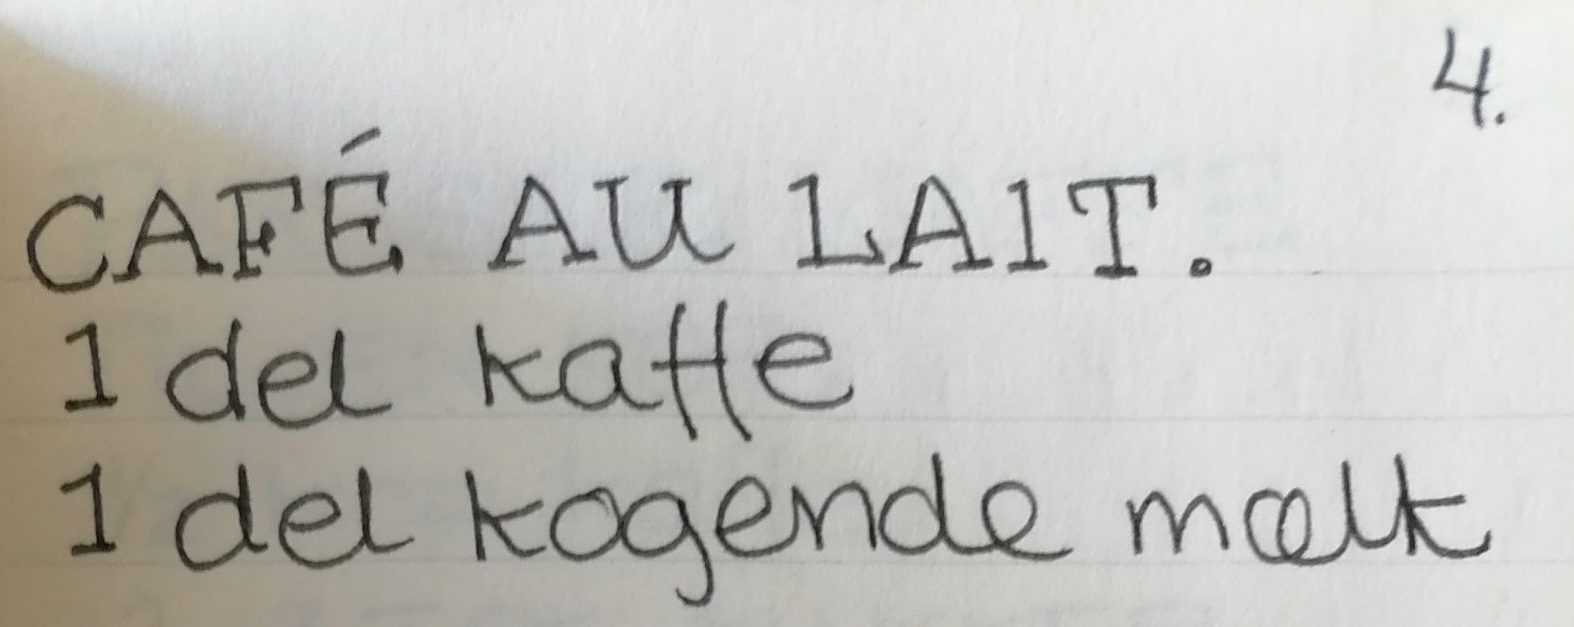 4.
CAFÉ AU LAIT.
1 del kaffe
1 del kogende mælk